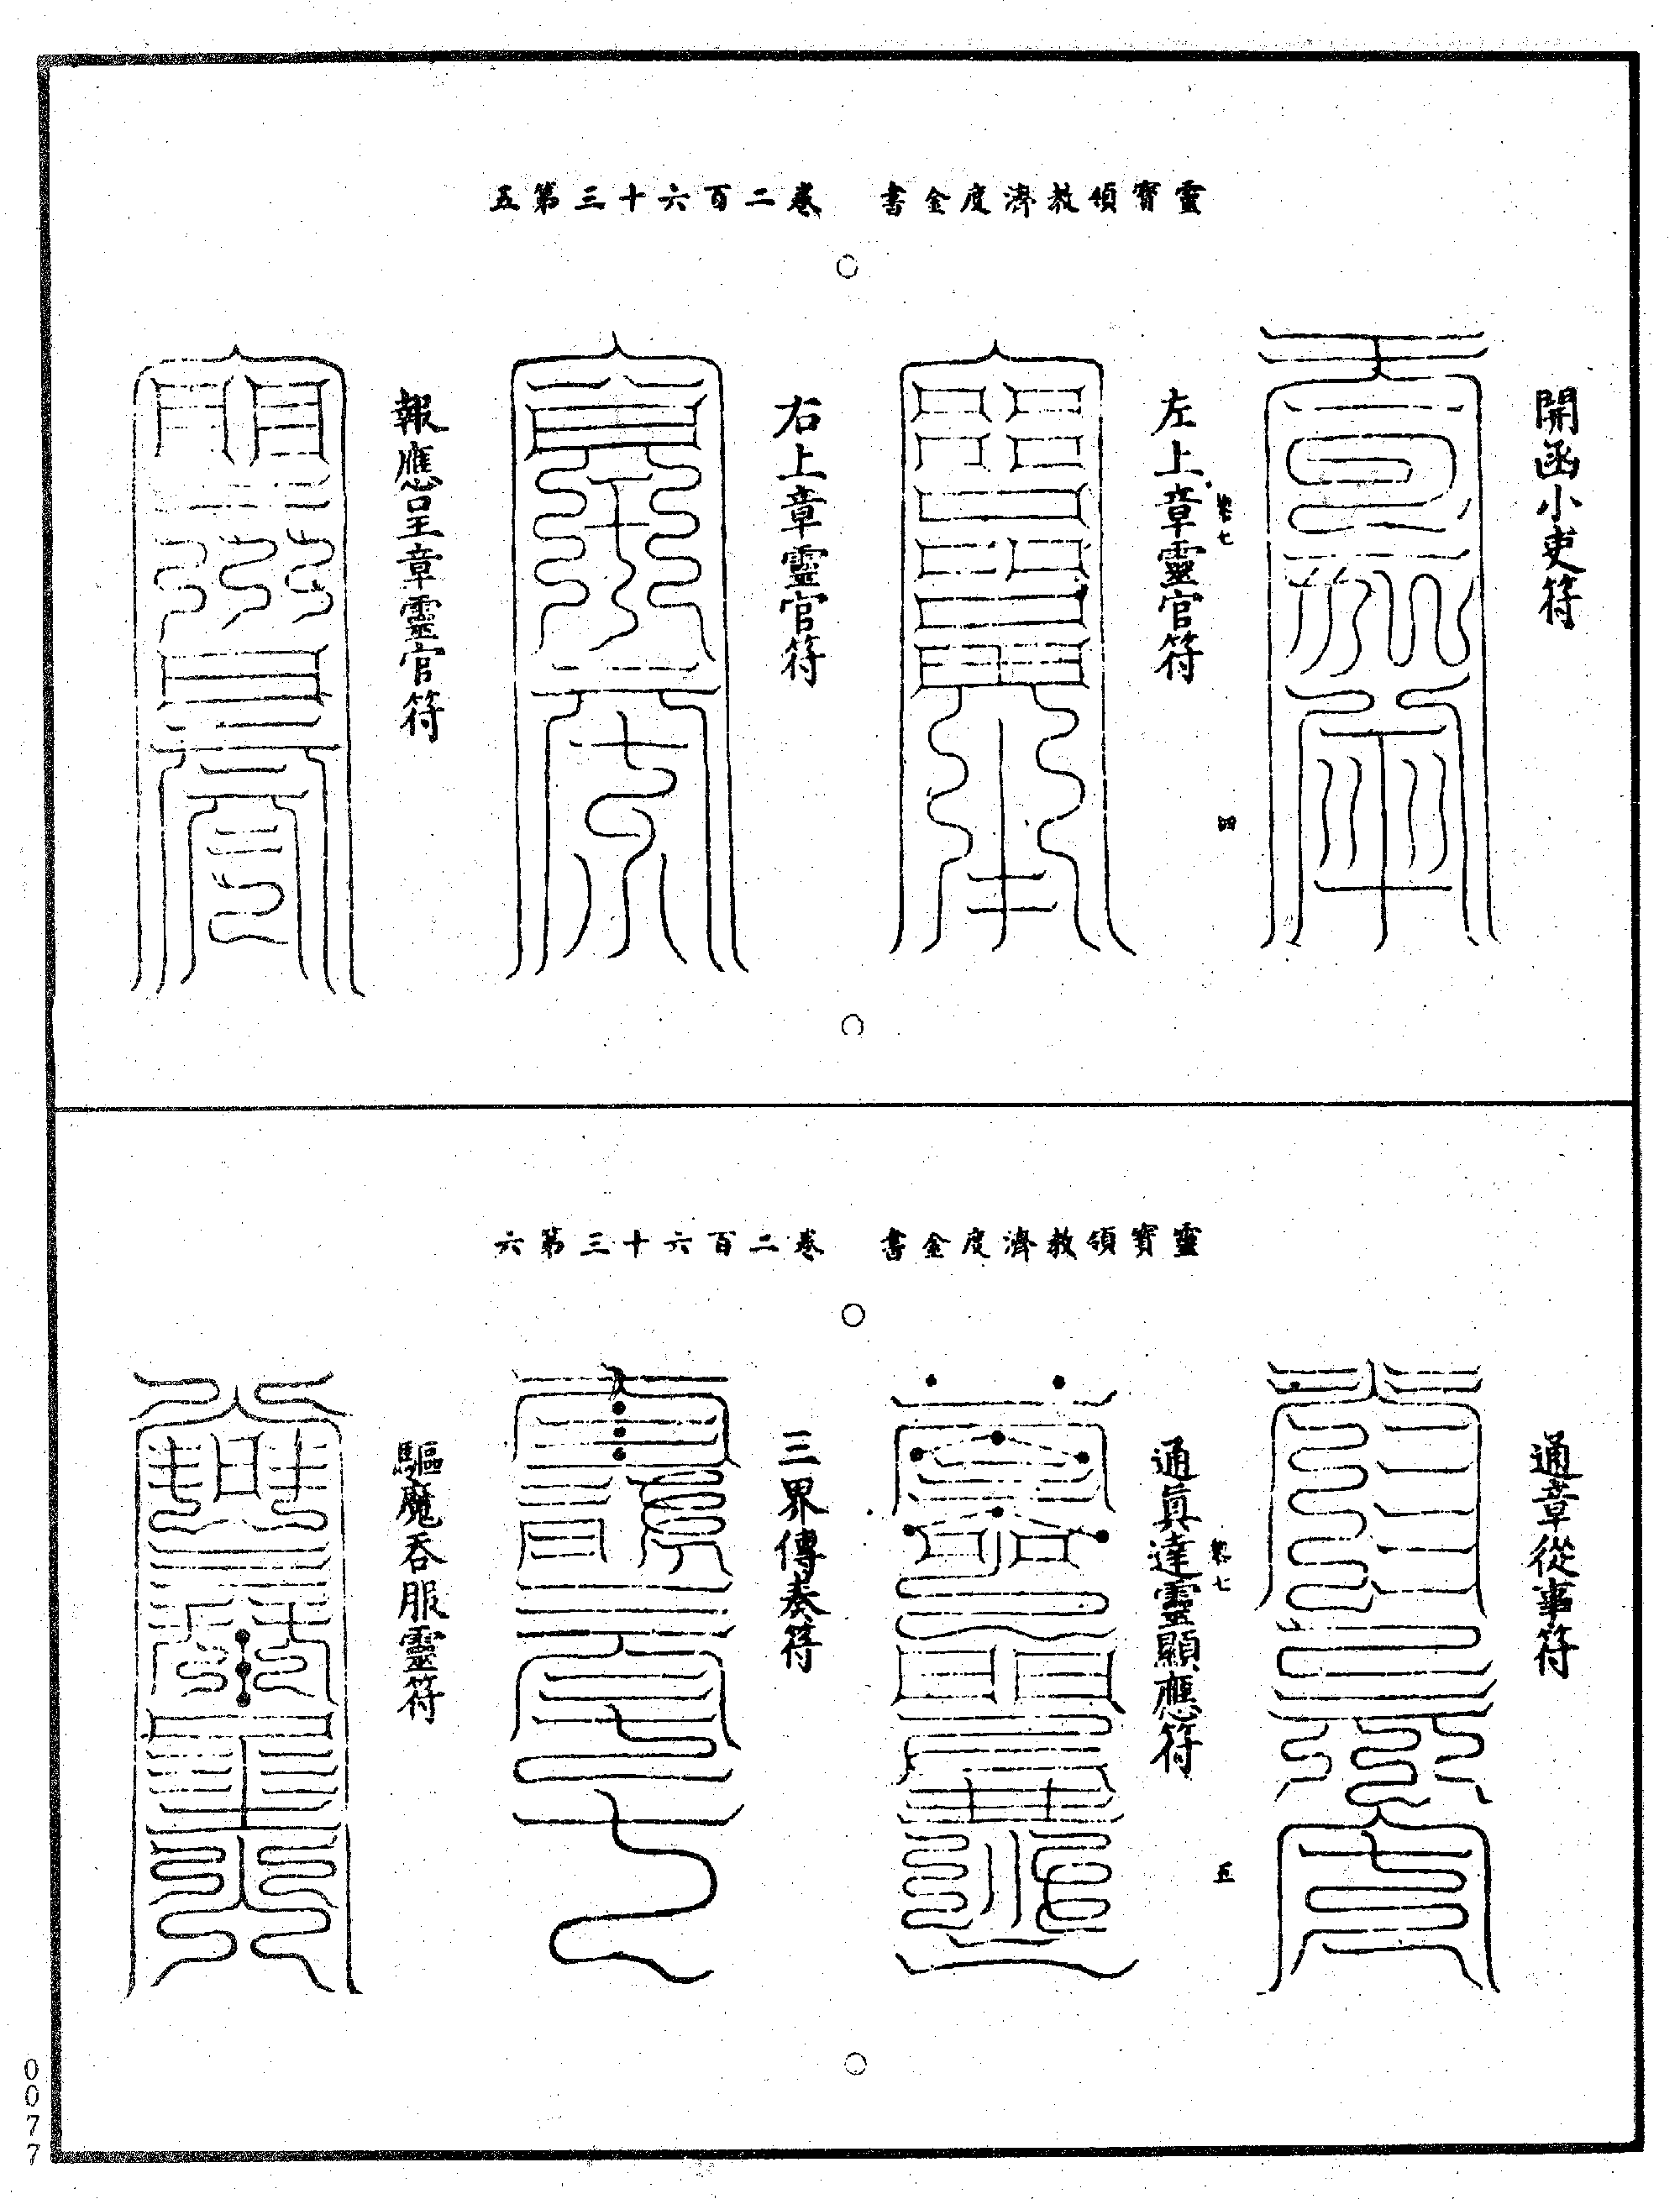 靈寶領教濟度金書　卷二百六十三第五
開函小吏符
四
左上章靈官符
右上章靈官符
報應呈章靈官符
靈寶領教濟度金書　卷二百六十三第六
通章從事符
五
通眞達靈顯應符
三界傳奏符
驅魔吞服靈符
0077